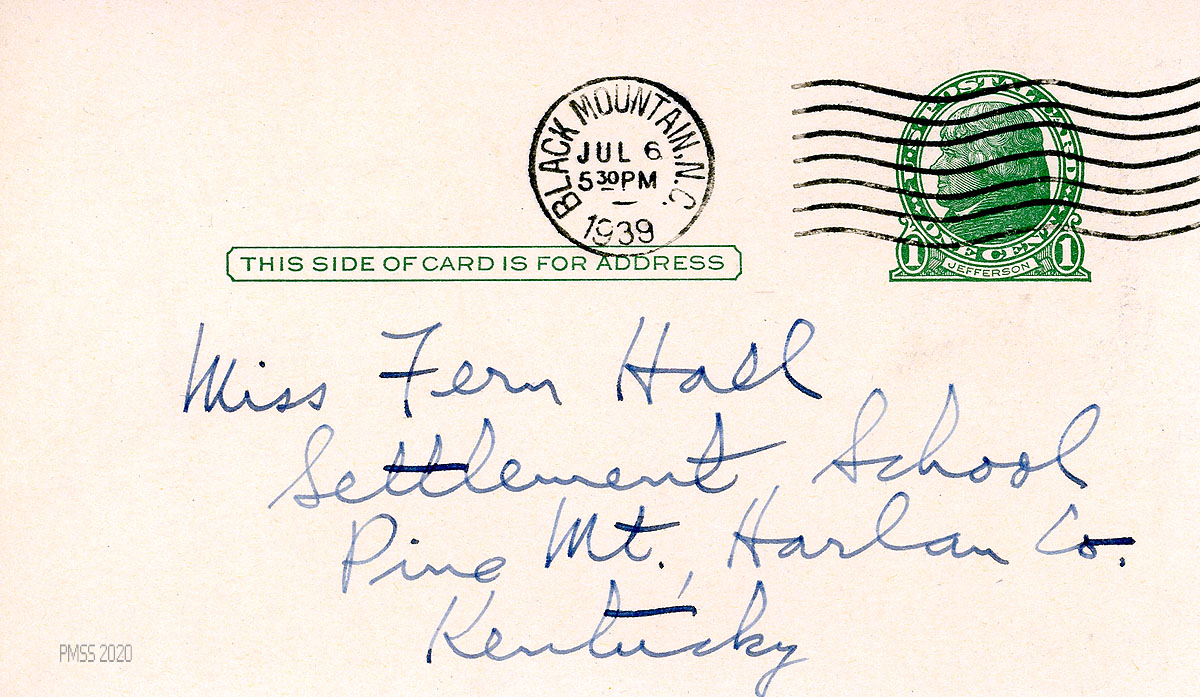 BLACK MOUNTAIN, N.C.
JUL 6
5 30 PM
1939
U.S. POSTAL CARD
ONE CENT
1 JEFFERSON 1
THIS SIDE OF CARD IS FOR ADDRESS
Miss Fern Hall
Settlement School
Pine Mt. Harlan Co.
Kentucky
PMSS 2020